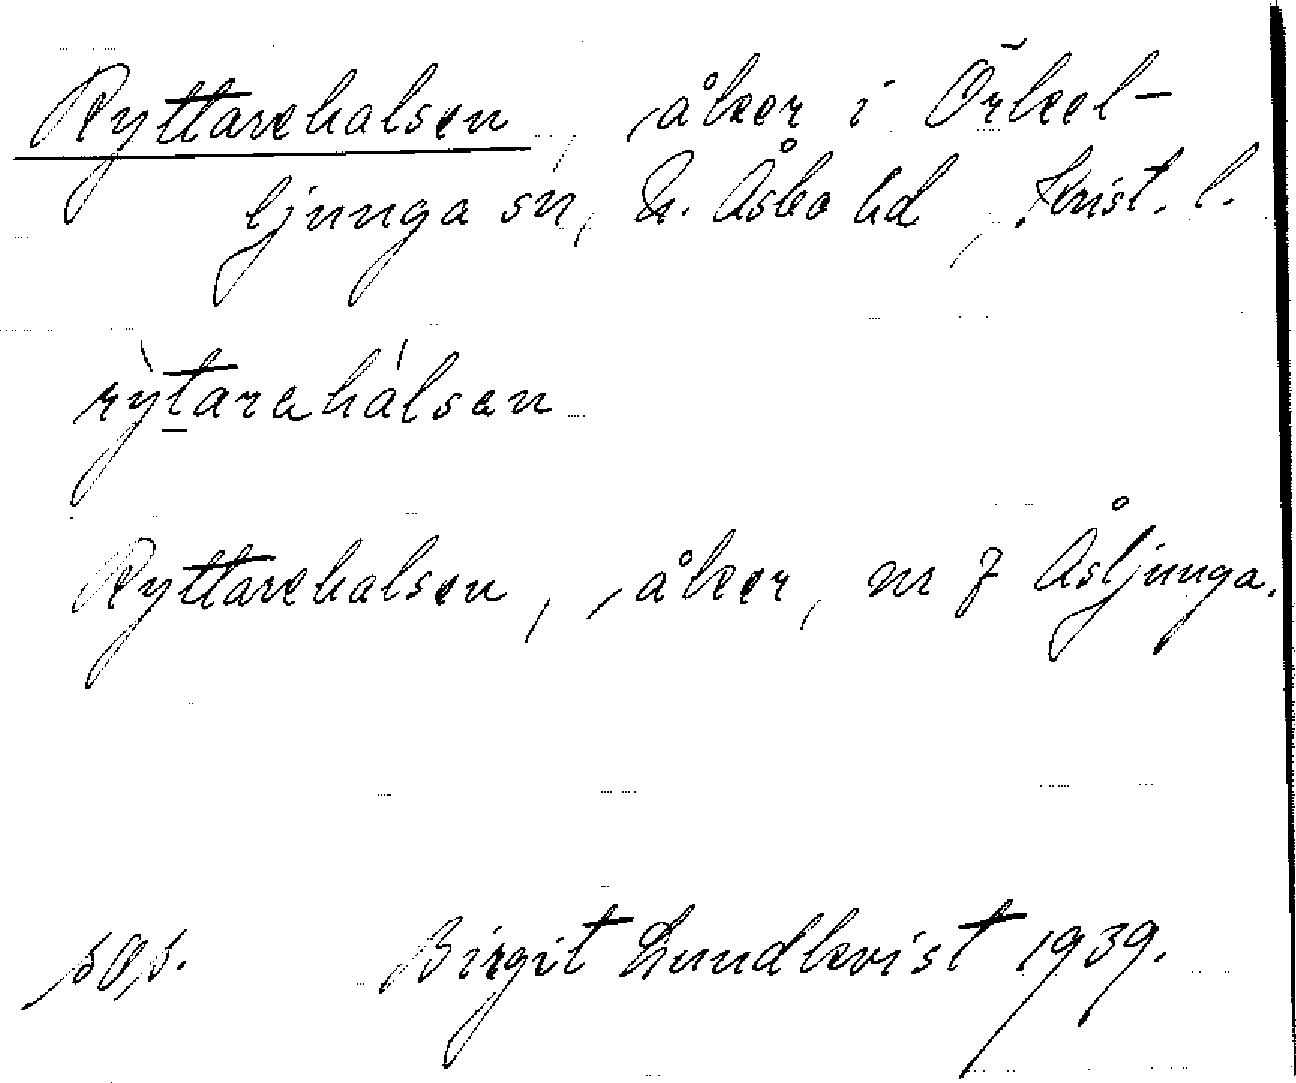 Ryttarehalsen, åker i Örkel-
ljunga sn, N. Åsbo hd, Krist. l.
rỳtarahálsan
Ryttarehalsen, åker, nr 7 Åsljunga.
Birgit Lundkvist 1939.